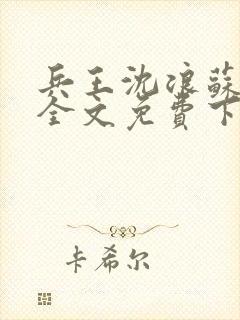 兵王沈浪蘇
全文免費下
卡希尔